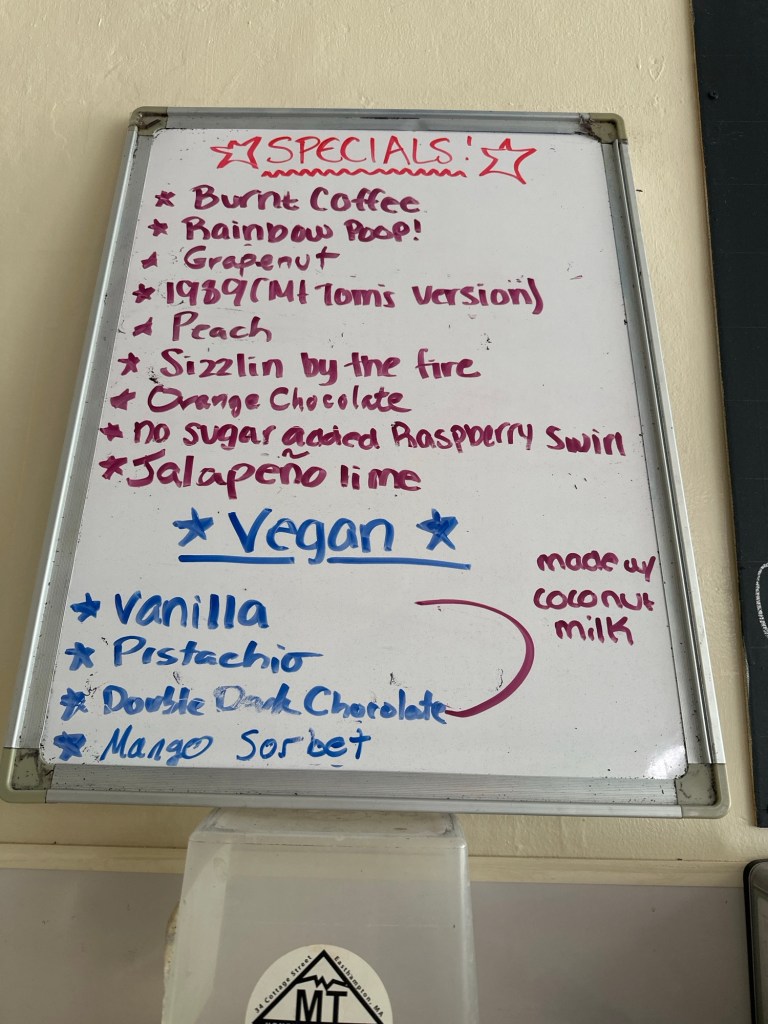 SPECIALS!
Burnt Coffee
Rainbow Poop!
Grapenut
1989 (Mt Tom's Version)
Peach
Sizzlin by the fire
Orange Chocolate
no sugar added Raspberry Swirl
Jalapeño lime
Vegan
made w/
coconut
milk
Vanilla
Pistachio
Double Dark Chocolate
Mango Sorbet
34 Cottage Street Easthampton, MA
MT